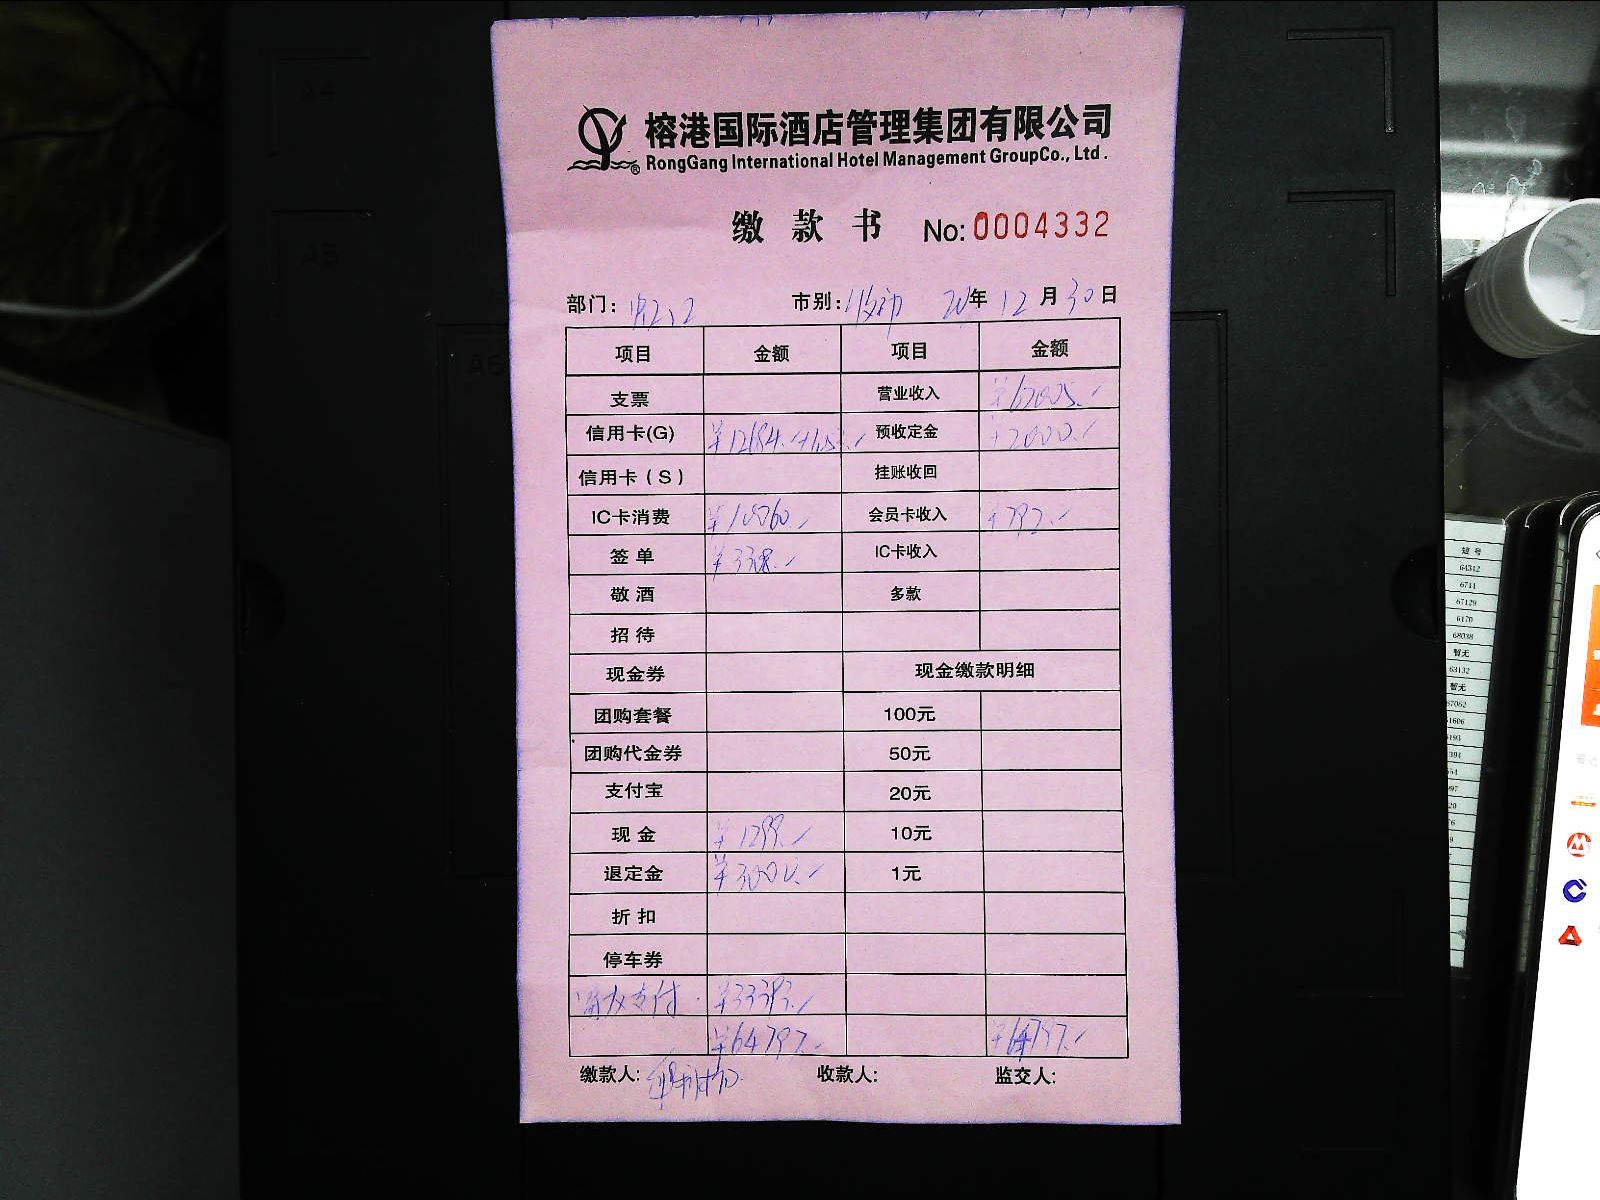 榕港国际酒店管理集团有限公司
RongGang International Hotel Management GroupCo., Ltd.
缴款书 No: 0004332
部门: 市别: 年 12 月 30 日
项目 金额 项目 金额
支票 营业收入
信用卡(G) 预收定金 ¥2000.
信用卡(S) 挂账收回
IC卡消费 会员卡收入 ¥797.
签单 ¥338. IC卡收入
敬酒 多款
招待
现金券 现金缴款明细
团购套餐 100元
团购代金券 50元
支付宝 20元
现金 ¥1299. 10元
退定金 ¥3000. 1元
折扣
停车券
支付
¥64797. ¥64797.
缴款人: 收款人: 监交人:
A4
A5
A6
短号
64312
6711
67129
6170
68038
暂无
63132
暂无